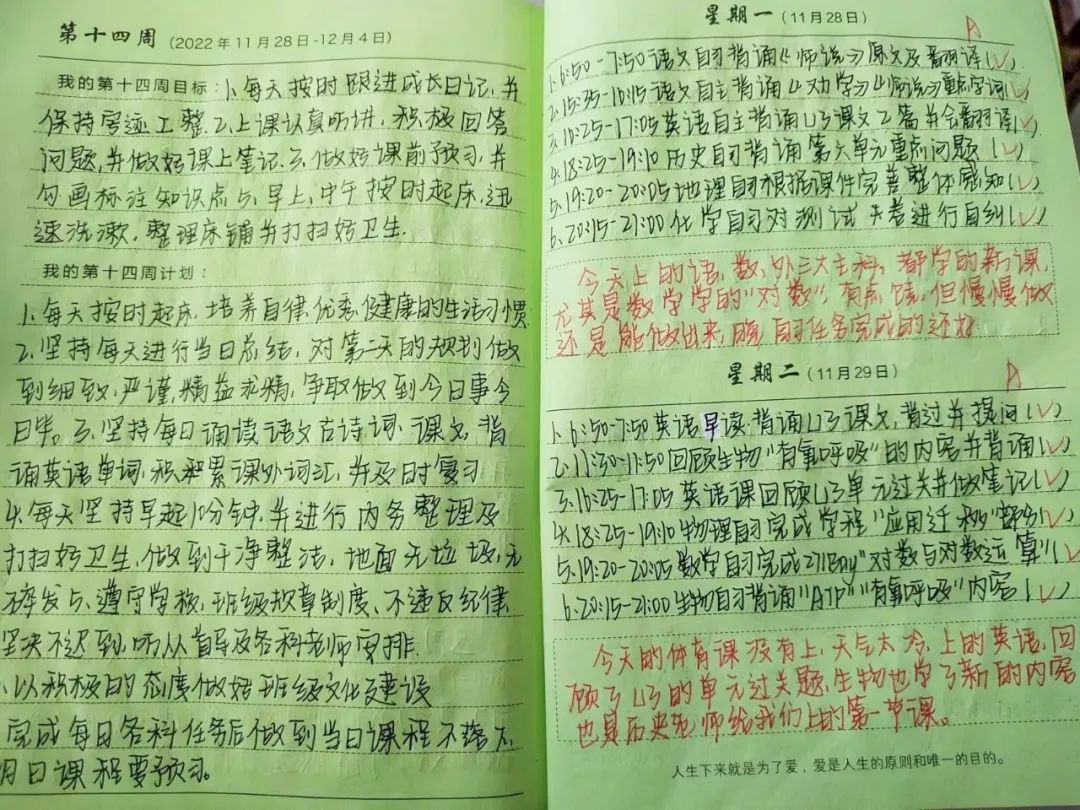 第十四周 (2022年11月28日-12月4日)
我的第十四周目标：1、每天按时跟进成长日记，并
保持字迹工整.2、上课认真听讲，积极回答
问题，并做好课上笔记.3、做好课前预习，并
勾画标注知识点 5、早上、中午按时起床，迅
速洗漱，整理床铺并打扫好卫生.
我的第十四周计划：
1、每天按时起床，培养自律、优秀、健康的生活习惯.
2、坚持每天进行当日总结，对第二天的规划做
到细致，严谨，精益求精，争取做到今日事今
日毕。3、坚持每日诵读语文古诗词、课文，背
诵英语单词，积累课外词汇，并及时复习
4、每天坚持早起10分钟，并进行内务整理及
打扫好卫生，做到干净整洁，地面无垃圾，无
碎发 5、遵守学校，班级规章制度、不违反纪律
坚决不迟到，听从首导及各科老师安排.
以积极的态度做好班级文化建设
完成每日各科任务后做到当日课程不落下，
明日课程要预习。
星期一 (11月28日) A
1、6:50-7:50 语文自习背诵《师说》原文及翻译(✓)
2、15:35-16:15 语文自主背诵《劝学》《师说》重点字词(✓)
3、16:25-17:05 英语自主背诵U3课文2篇并会翻译(✓)
4、18:25-19:10 历史自习背诵第六单元重点问题 (✓)
5、19:20-20:05 地理自习根据课件完善整体感知(✓)
6、20:15-21:00 化学自习对测试卡卷进行自纠(✓)
今天上的语、数、外三大主科，都学的新课，
尤其是数学学的“对数”，有点懵，但慢慢做
还是能做出来，晚自习任务完成的还好
星期二 (11月29日) A
1、6:50-7:50 英语早读背诵U3课文，背过并提问(✓)
2、11:30-11:50 回顾生物“有氧呼吸”的内容并背诵(✓)
3、16:25-17:05 英语课回顾U3单元过关并做笔记(✓)
4、18:25-19:10 物理自习完成学程“应用迁移”部分(✓)
5、19:20-20:05 数学自习完成21Day“对数与对数运算”(✓)
6、20:15-21:00 生物自习背诵“ATP”“有氧呼吸”内容(✓)
今天的体育课没有上，天气太冷，上的英语，回
顾了U3的单元过关题，生物也学了新的内容
也是历史老师给我们上的第一节课。
人生下来就是为了爱，爱是人生的原则和唯一的目的。